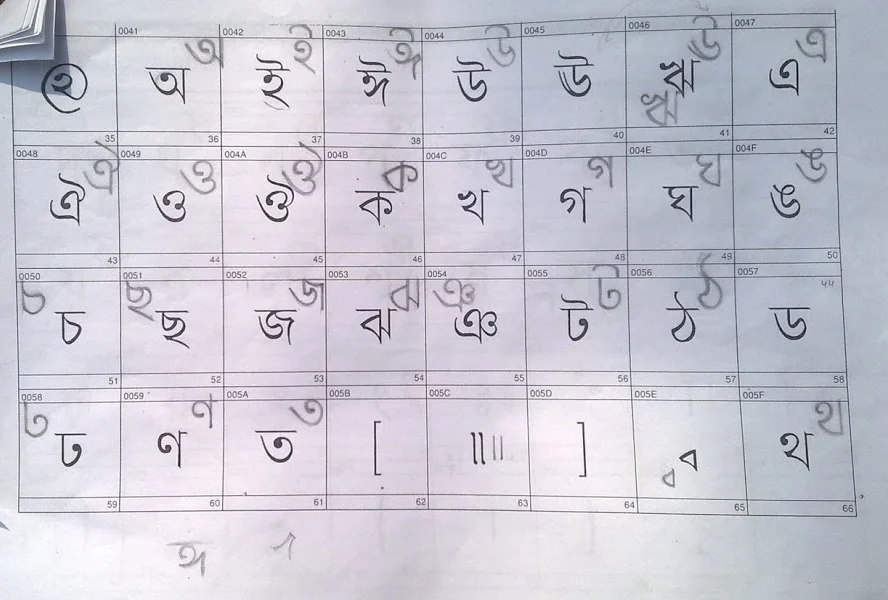 0041 0042 0043 0044 0045 0046 0047
অ অ ই ই ঈ ঈ উ উ ঊ ঋ ঋ উ এ এ
35 36 37 38 39 40 41 42
0048 0049 004A 004B 004C 004D 004E 004F
ঐ ঐ ও ও ঔ ঔ ক ক খ খ গ গ ঘ ঘ ঙ ঙ
43 44 45 46 47 48 49 50
0050 0051 0052 0053 0054 0055 0056 0057
চ চ ছ ছ জ জ ঝ ঝ ঞ ঞ ট ট ঠ ঠ ড 44
51 52 53 54 55 56 57 58
0058 0059 005A 005B 005C 005D 005E 005F
ঢ ঢ ণ ণ ত ত [ ॥ ॥ ] থ থ
59 60 61 62 63 64 65 66